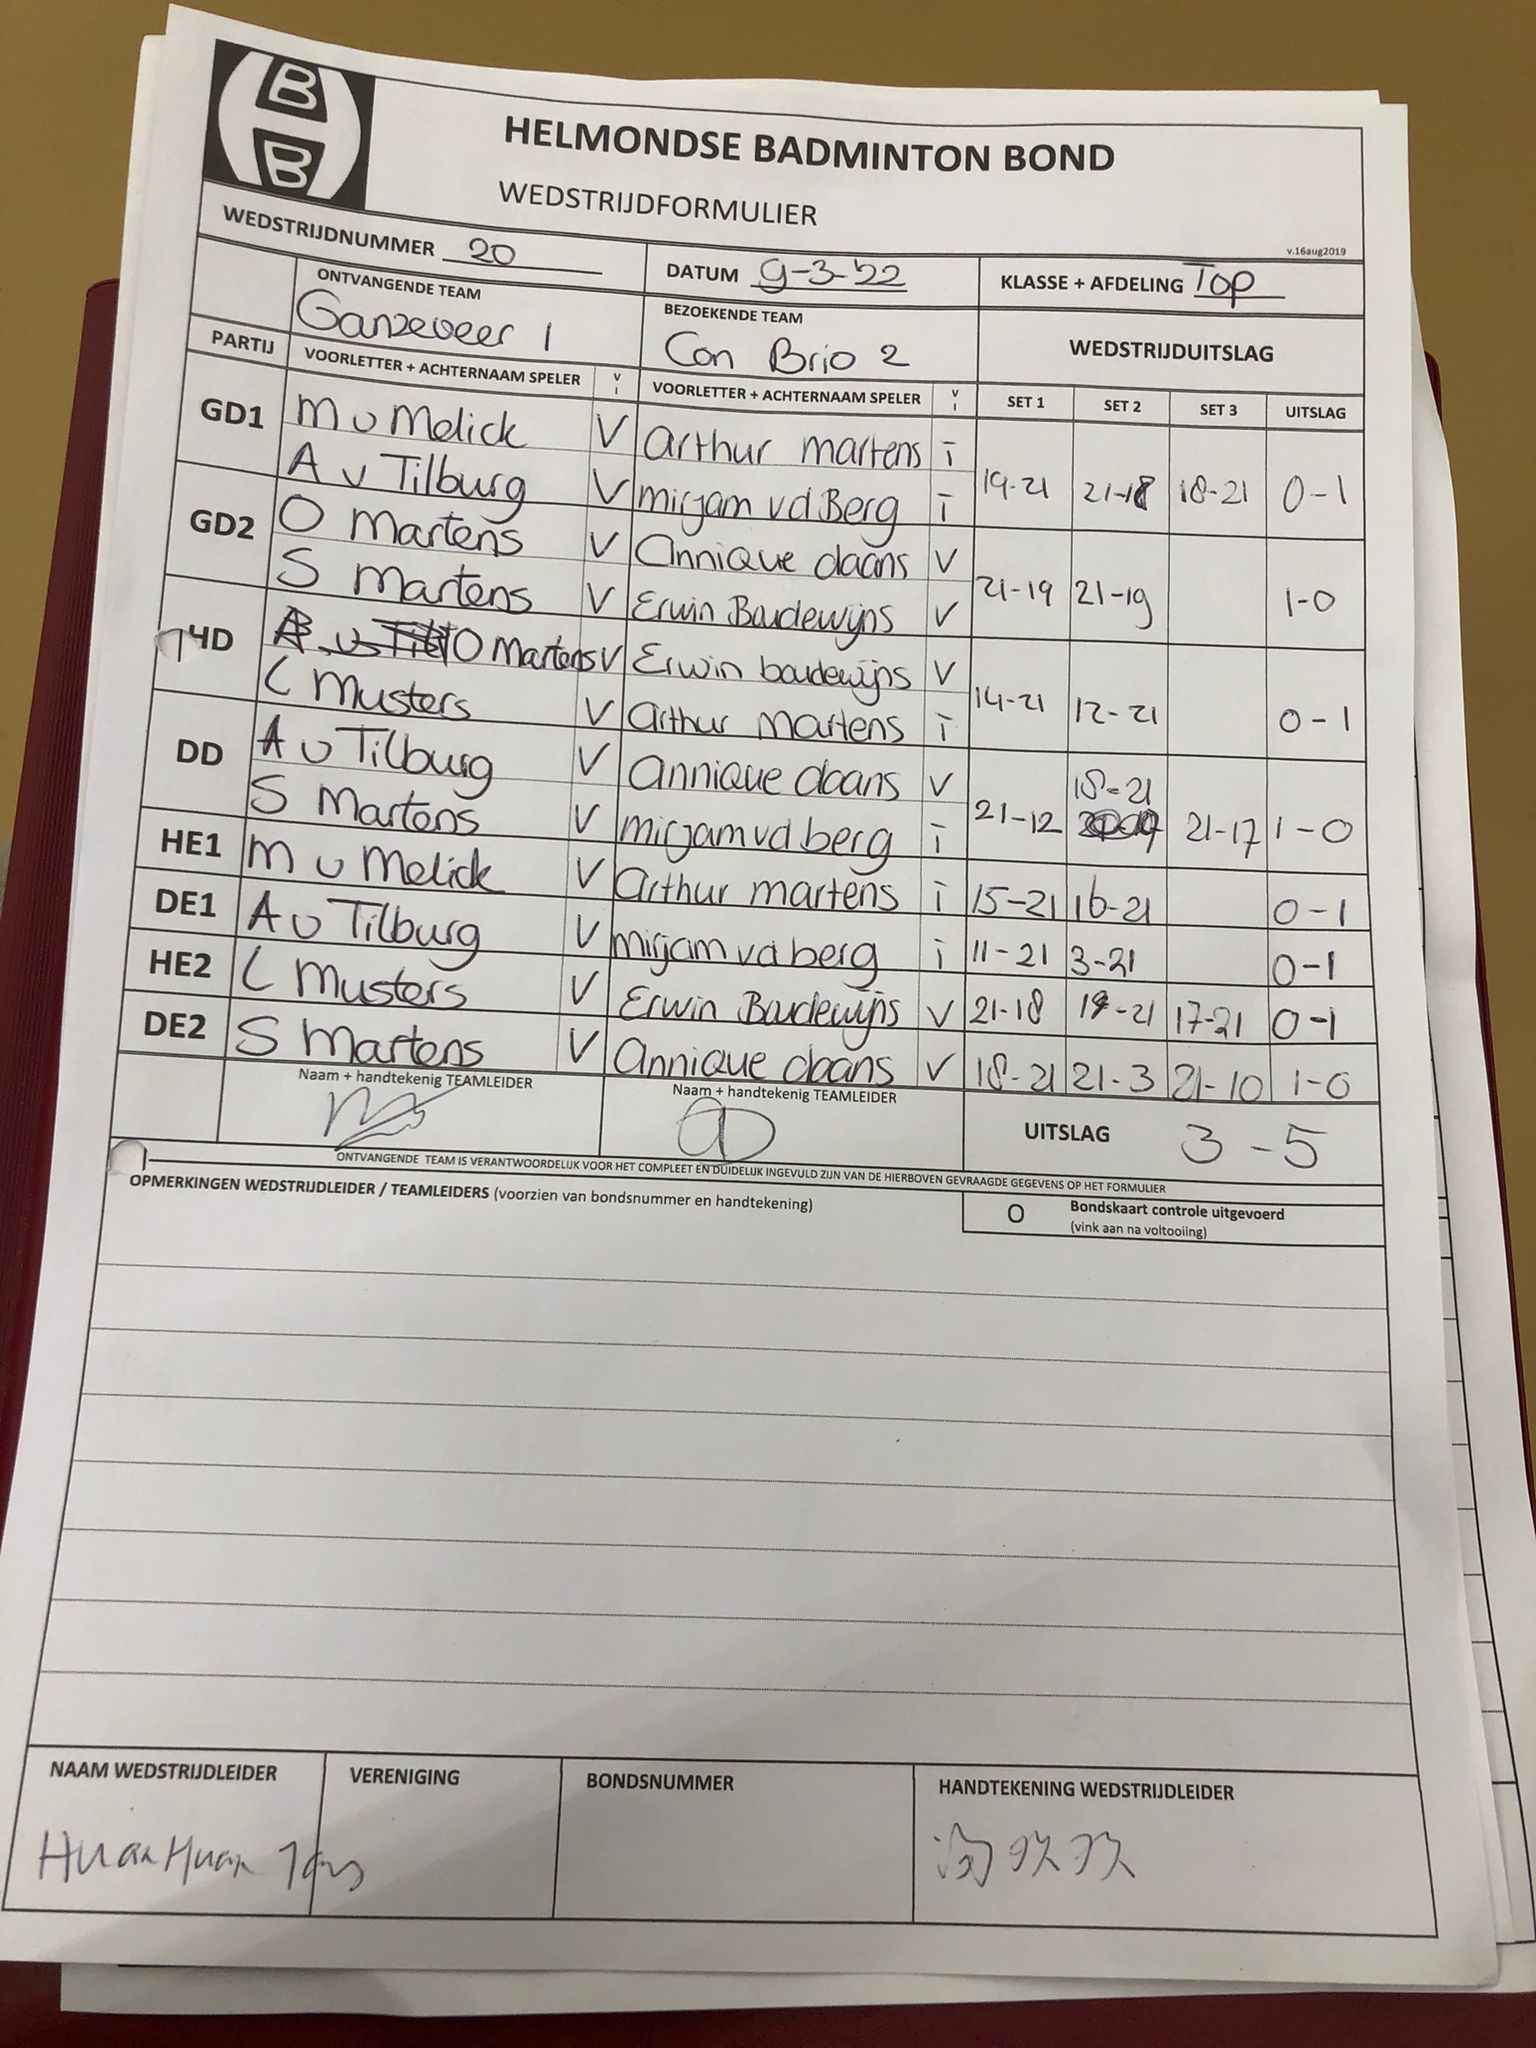 B
B
HELMONDSE BADMINTON BOND
WEDSTRIJDFORMULIER
v.16aug2019
WEDSTRIJDNUMMER 20 DATUM 9-3-'22 KLASSE + AFDELING Top
ONTVANGENDE TEAM BEZOEKENDE TEAM
Ganzeveer 1 Con Brio 2 WEDSTRIJDUITSLAG
PARTIJ VOORLETTER + ACHTERNAAM SPELER V I VOORLETTER + ACHTERNAAM SPELER V I SET 1 SET 2 SET 3 UITSLAG
GD1 M v Melick V Arthur martens i
A v Tilburg V mirjam vd Berg i 19-21 21-18 18-21 0-1
GD2 O Martens V Annique daans V
S Martens V Erwin Baudewijns V 21-19 21-19 1-0
HD O Martens V Erwin baudewijns V
L Musters V Arthur Martens i 14-21 12-21 0-1
DD A v Tilburg V Annique daans V 18-21
S Martens V mirjam vd berg i 21-12 21-17 1-0
HE1 M v Melick V Arthur martens i 15-21 16-21 0-1
DE1 A v Tilburg V mirjam vd berg i 11-21 3-21 0-1
HE2 L Musters V Erwin Baudewijns V 21-18 19-21 17-21 0-1
DE2 S Martens V Annique daans V 18-21 21-3 21-10 1-0
Naam + handtekenig TEAMLEIDER Naam + handtekenig TEAMLEIDER
UITSLAG 3-5
ONTVANGENDE TEAM IS VERANTWOORDELIJK VOOR HET COMPLEET EN DUIDELIJK INGEVULD ZIJN VAN DE HIERBOVEN GEVRAAGDE GEGEVENS OP HET FORMULIER
OPMERKINGEN WEDSTRIJDLEIDER / TEAMLEIDERS (voorzien van bondsnummer en handtekening)
O Bondskaart controle uitgevoerd
(vink aan na voltooiing)
NAAM WEDSTRIJDLEIDER VERENIGING BONDSNUMMER HANDTEKENING WEDSTRIJDLEIDER
HuanHuan